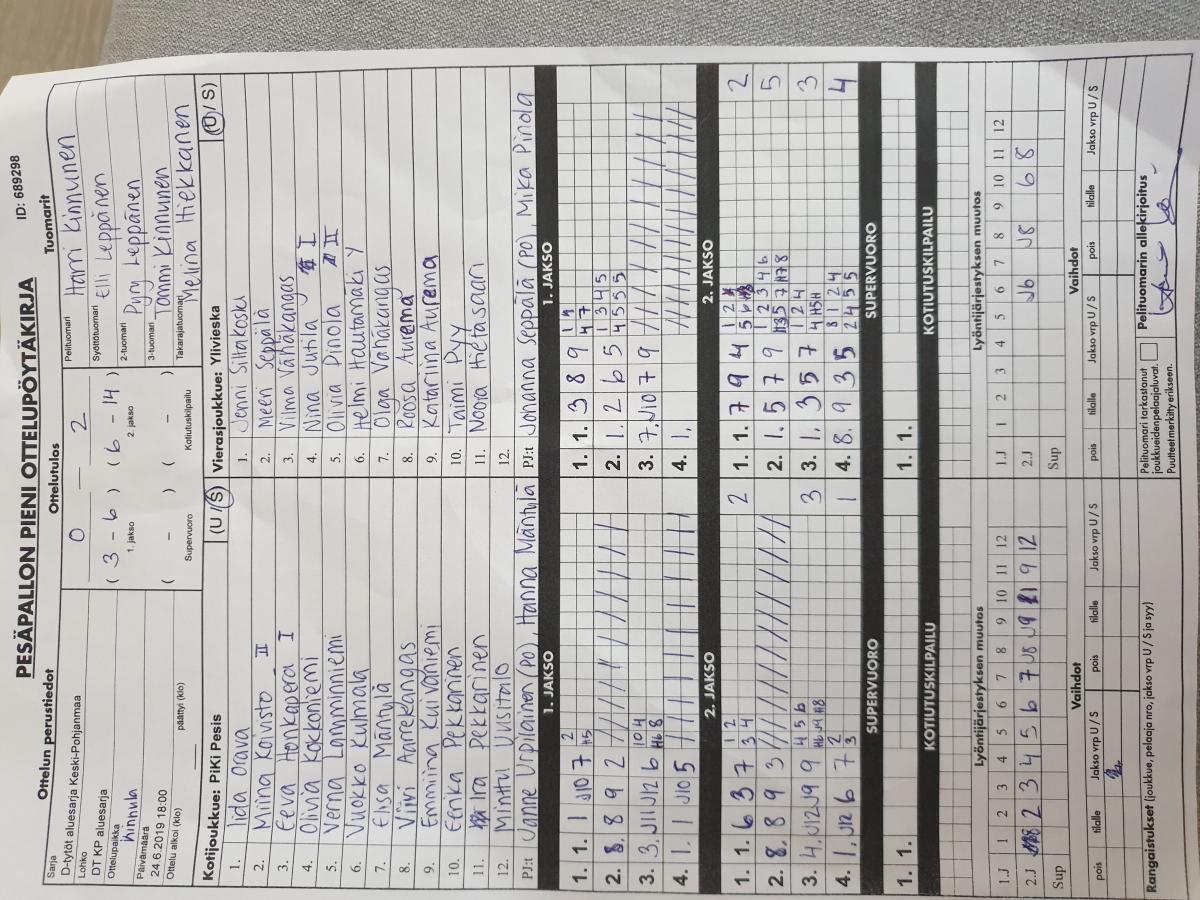 PESÄPALLON PIENI OTTELUPÖYTÄKIRJA
ID: 689298
Ottelun perustiedot
Sarja
D-tytöt aluesarja Keski-Pohjanmaa
Lohko
DT KP aluesarja
Ottelupaikka
Päivämäärä
24.6.2019 18:00
Ottelu alkoi (klo)
päättyi (klo)
Ottelutulos
0 — 2
( 3 - 6 ) ( 6 - 14 )
1. jakso 2. jakso
( - ) ( - )
Supervuoro Kotiutuskilpailu
Tuomarit
Pelituomari Harri Kinnunen
Syöttötuomari Elli Leppänen
2-tuomari Pyry Leppänen
3-tuomari Tommi Kinnunen
Takarajatuomari Melina Hiekkanen
Kotijoukkue: PiKi Pesis (U / S)
1. Iida Orava
2. Miina Koivisto II
3. Eeva Honkaperä I
4. Olivia Kokkoniemi
5. Verna Lamminniemi
6. Vuokko Kulmala
7. Elisa Mäntylä
8. Viivi Aarrekangas
9. Emmiina Kuivaniemi
10. Eerika Pekkarinen
11. Pekkarinen
12. Minttu Uusitalo
PJ:t Janne Urpilainen (PO), Hanna Mäntylä
Vierasjoukkue: Ylivieska (U / S)
1. Jenni Siltakoski
2. Meeri Seppälä
3. Vilma Vähäkangas
4. Nina Jutila I
5. Olivia Pinola II
6. Helmi Hautamäki Y
7. Olga Vähäkangas
8. Roosa Aurema
9. Katariina Aurema
10. Taimi Pyy
11. Noora Hietasaari
12.
PJ:t Johanna Seppälä (PO), Mika Pinola
1. JAKSO
1. 1. 1 J10 7
2. 8. 8 9 2
3. 3. J11 J12 6
4. 1. 1 J10 5
1. JAKSO
1. 1. 3 8 9
2. 1. 2 6 5
3. 7. J10 7 9
4. 1.
2. JAKSO
1. 1. 6 3 7 2
2. 8. 8 9 3
3. 4. J12 J9 9 3
4. 1. J12 6 7 1
2. JAKSO
1. 1. 7 9 4 2
2. 1. 5 7 9 5
3. 1. 3 5 7 3
4. 8. 9 3 5 4
SUPERVUORO
1. 1.
SUPERVUORO
1. 1.
KOTIUTUSKILPAILU
KOTIUTUSKILPAILU
Lyöntijärjestyksen muutos
1 2 3 4 5 6 7 8 9 10 11 12
1.J
2.J 2 3 4 5 6 7 J8 J9 9 12
Sup
Lyöntijärjestyksen muutos
1 2 3 4 5 6 7 8 9 10 11 12
1.J
2.J J6 J8 6 8
Sup
Vaihdot
pois tilalle Jakso vrp U / S pois tilalle Jakso vrp U / S
Vaihdot
pois tilalle Jakso vrp U / S pois tilalle Jakso vrp U / S
Rangaistukset (joukkue, pelaaja nro, jakso vrp U / S ja syy)
Pelituomari tarkastanut
joukkueidenpelaajaluvat.
Puutteetmerkittyerikseen.
Pelituomarin allekirjoitus